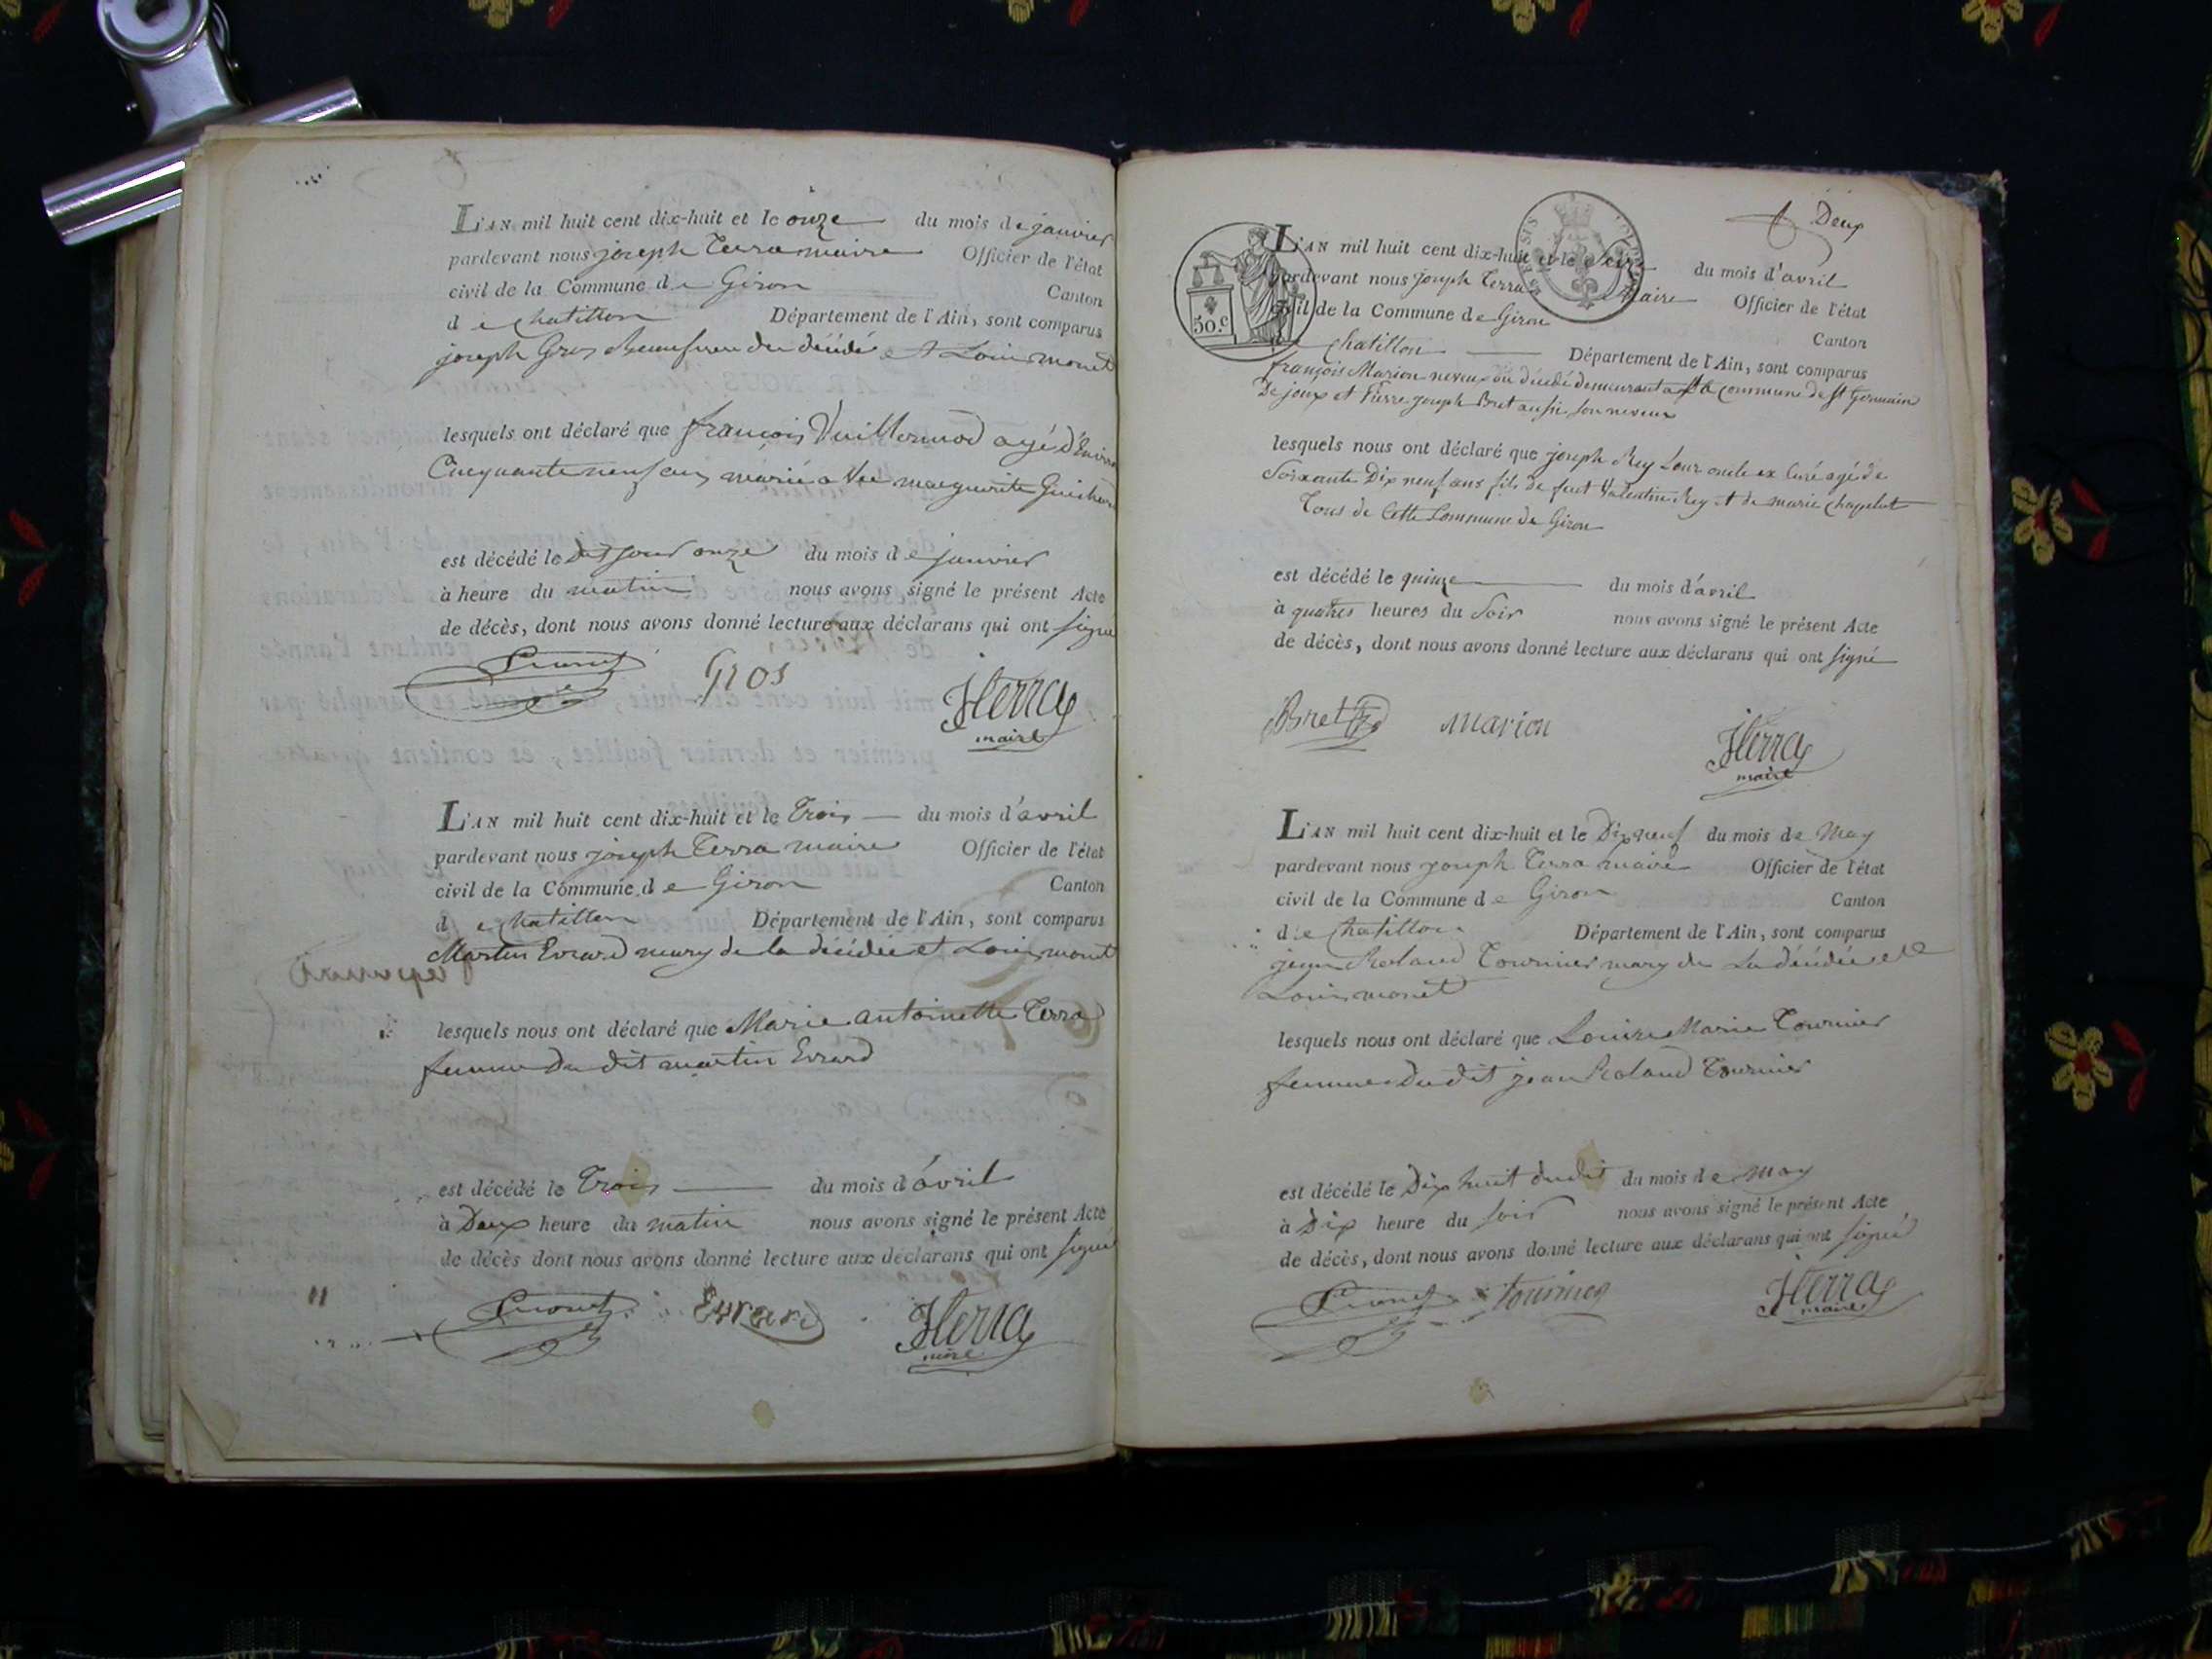 L'AN mil huit cent dix-huit et le onze du mois de janvier
pardevant nous joseph Terra maire Officier de l'état
civil de la Commune de Giron Canton
de chatillon Département de l'Ain, sont comparus
joseph Gros Beaufrere du décédé et Louis monet
lesquels ont déclaré que françois Vuillermod agé d'Environ
Cinquante neuf ans marié a marguerite
est décédé le dit jour onze du mois de janvier
à heure du matin nous avons signé le présent Acte
de décès, dont nous avons donné lecture aux déclarans qui ont signé
Lmonet Gros JTerra
maire
L'AN mil huit cent dix-huit et le Trois du mois d'avril
pardevant nous joseph Terra maire Officier de l'état
civil de la Commune de Giron Canton
de chatillon Département de l'Ain, sont comparus
Martin Evrard mary de la décédée et Louis monet
lesquels nous ont déclaré que Marie antoinette Terra
femme Du dit martin Evrard
est décédé le Trois du mois d'avril
à Deux heure du matin nous avons signé le présent Acte
de décès dont nous avons donné lecture aux déclarans qui ont signé
Lmonet Evrard JTerra
maire
Deux
L'AN mil huit cent dix-huit et le Seize du mois d'avril
pardevant nous joseph Terra Maire Officier de l'état
civil de la Commune de Giron
Canton
chatillon Département de l'Ain, sont comparus
françois Marion neveux du décédé demeurant a la commune de St Germain
De joux et Pierre joseph Bret aussi son neveux
lesquels nous ont déclaré que joseph Rey Leur oncle ex Curé agé de
Soixante Dix neuf ans fils de feut Valentin Rey et de marie chapelut
Tous de Cette Commune de Giron
est décédé le quinze du mois d'avril
à quatres heures du Soir nous avons signé le présent Acte
de décès, dont nous avons donné lecture aux déclarans qui ont signé
Bret Marion JTerra
maire
L'AN mil huit cent dix-huit et le Dix neuf du mois de May
pardevant nous joseph Terra maire Officier de l'état
civil de la Commune de Giron Canton
de Chatillon Département de l'Ain, sont comparus
jean Roland Tournier mary de La décédée et
Louis monet
lesquels nous ont déclaré que Louise Marie Tournier
femme Du dit jean Roland Tournier
est décédé le Dix huit dudit du mois de may
à Dix heure du soir nous avons signé le présent Acte
de décès, dont nous avons donné lecture aux déclarans qui ont signé
Lmonet Tournier JTerra
maire
50.c